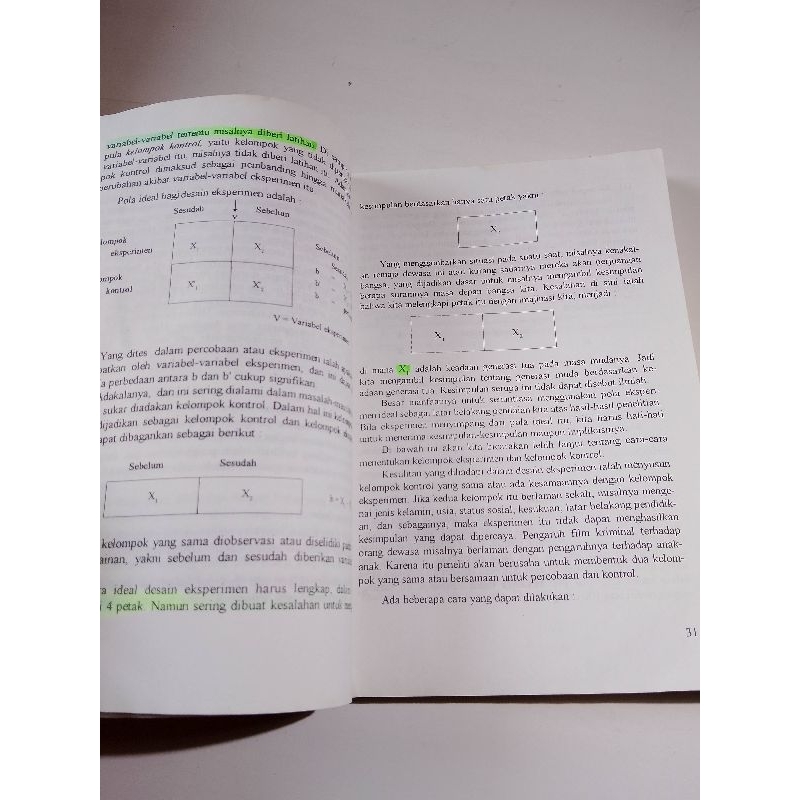 variabel-variabel tertentu misalnya diberi latihan. Di
pula kelompok kontrol, yaitu kelompok yang tidak
variabel-variabel itu, misalnya tidak diberi latihan itu.
pok kontrol dimaksud sebagai pembanding hingga
perubahan akibat variabel-variabel eksperimen itu
Pola ideal bagi desain eksperimen adalah :
Sesudah Sebelum
V
eksperimen X₁ X₂ Sebelum
kontrol X'₁ X'₂
V = Variabel
Yang dites dalam percobaan atau eksperimen ialah
oleh variabel-variabel eksperimen, dan
perbedaan antara b dan b' cukup signifikan.
Adakalanya, dan ini sering dialami dalam
sukar diadakan kelompok kontrol. Dalam hal ini
dijadikan sebagai kelompok kontrol dan kelompok
dapat dibagankan sebagai berikut :
Sebelum Sesudah
X₁ X₂
kelompok yang sama diobservasi atau diselidiki
yakni sebelum dan sesudah diberikan
ideal desain eksperimen harus lengkap,
4 petak. Namun sering dibuat kesalahan untuk
kesimpulan berdasarkan hanya satu petak yakni :
X
Yang menggambarkan situasi pada suatu saat, misalnya kenakal-
an remaja dewasa ini atau kurang mereka akan perjuangan
bangsa, yang dijadikan dasar untuk misalnya mengambil kesimpulan
betapa suramnya masa depan bangsa kita. Kesalahan di sini ialah
bahwa kita melengkapi petak itu dengan imajinasi kita, menjadi :
X₁ X₂
di mana X₁ adalah keadaan generasi tua pada masa mudanya. Jadi
kita mengambil kesimpulan tentang generasi muda berdasarkan ke-
adaan generasi tua. Kesimpulan serupa itu tidak dapat disebut ilmiah.
Besar manfaatnya untuk senantiasa menggunakan pola eksperi-
men ideal sebagai latar belakang pemikiran kita atas hasil-hasil penelitian.
Bila eksperimen menyimpang dari pola ideal ini, kita harus hati-hati
untuk menerima kesimpulan-kesimpulan maupun implikasinya.
Di bawah ini akan kita bicarakan lebih lanjut tentang cara-cara
menentukan kelompok eksperimen dan kelompok kontrol.
Kesulitan yang dihadapi dalam desain eksperimen ialah menyusun
kelompok kontrol yang sama atau ada kesamaannya dengan kelompok
eksperimen. Jika kedua kelompok itu berlainan sekali, misalnya menge-
nai jenis kelamin, usia, status sosial, kesukuan, latar belakang pendidik-
an, dan sebagainya, maka eksperimen itu tidak dapat menghasilkan
kesimpulan yang dapat dipercaya. Pengaruh film kriminal terhadap
orang dewasa misalnya berlainan dengan pengaruhnya terhadap anak-
anak. Karena itu peneliti akan berusaha untuk membentuk dua kelom-
pok yang sama atau bersamaan untuk percobaan dan kontrol.
Ada beberapa cara yang dapat dilakukan :
31